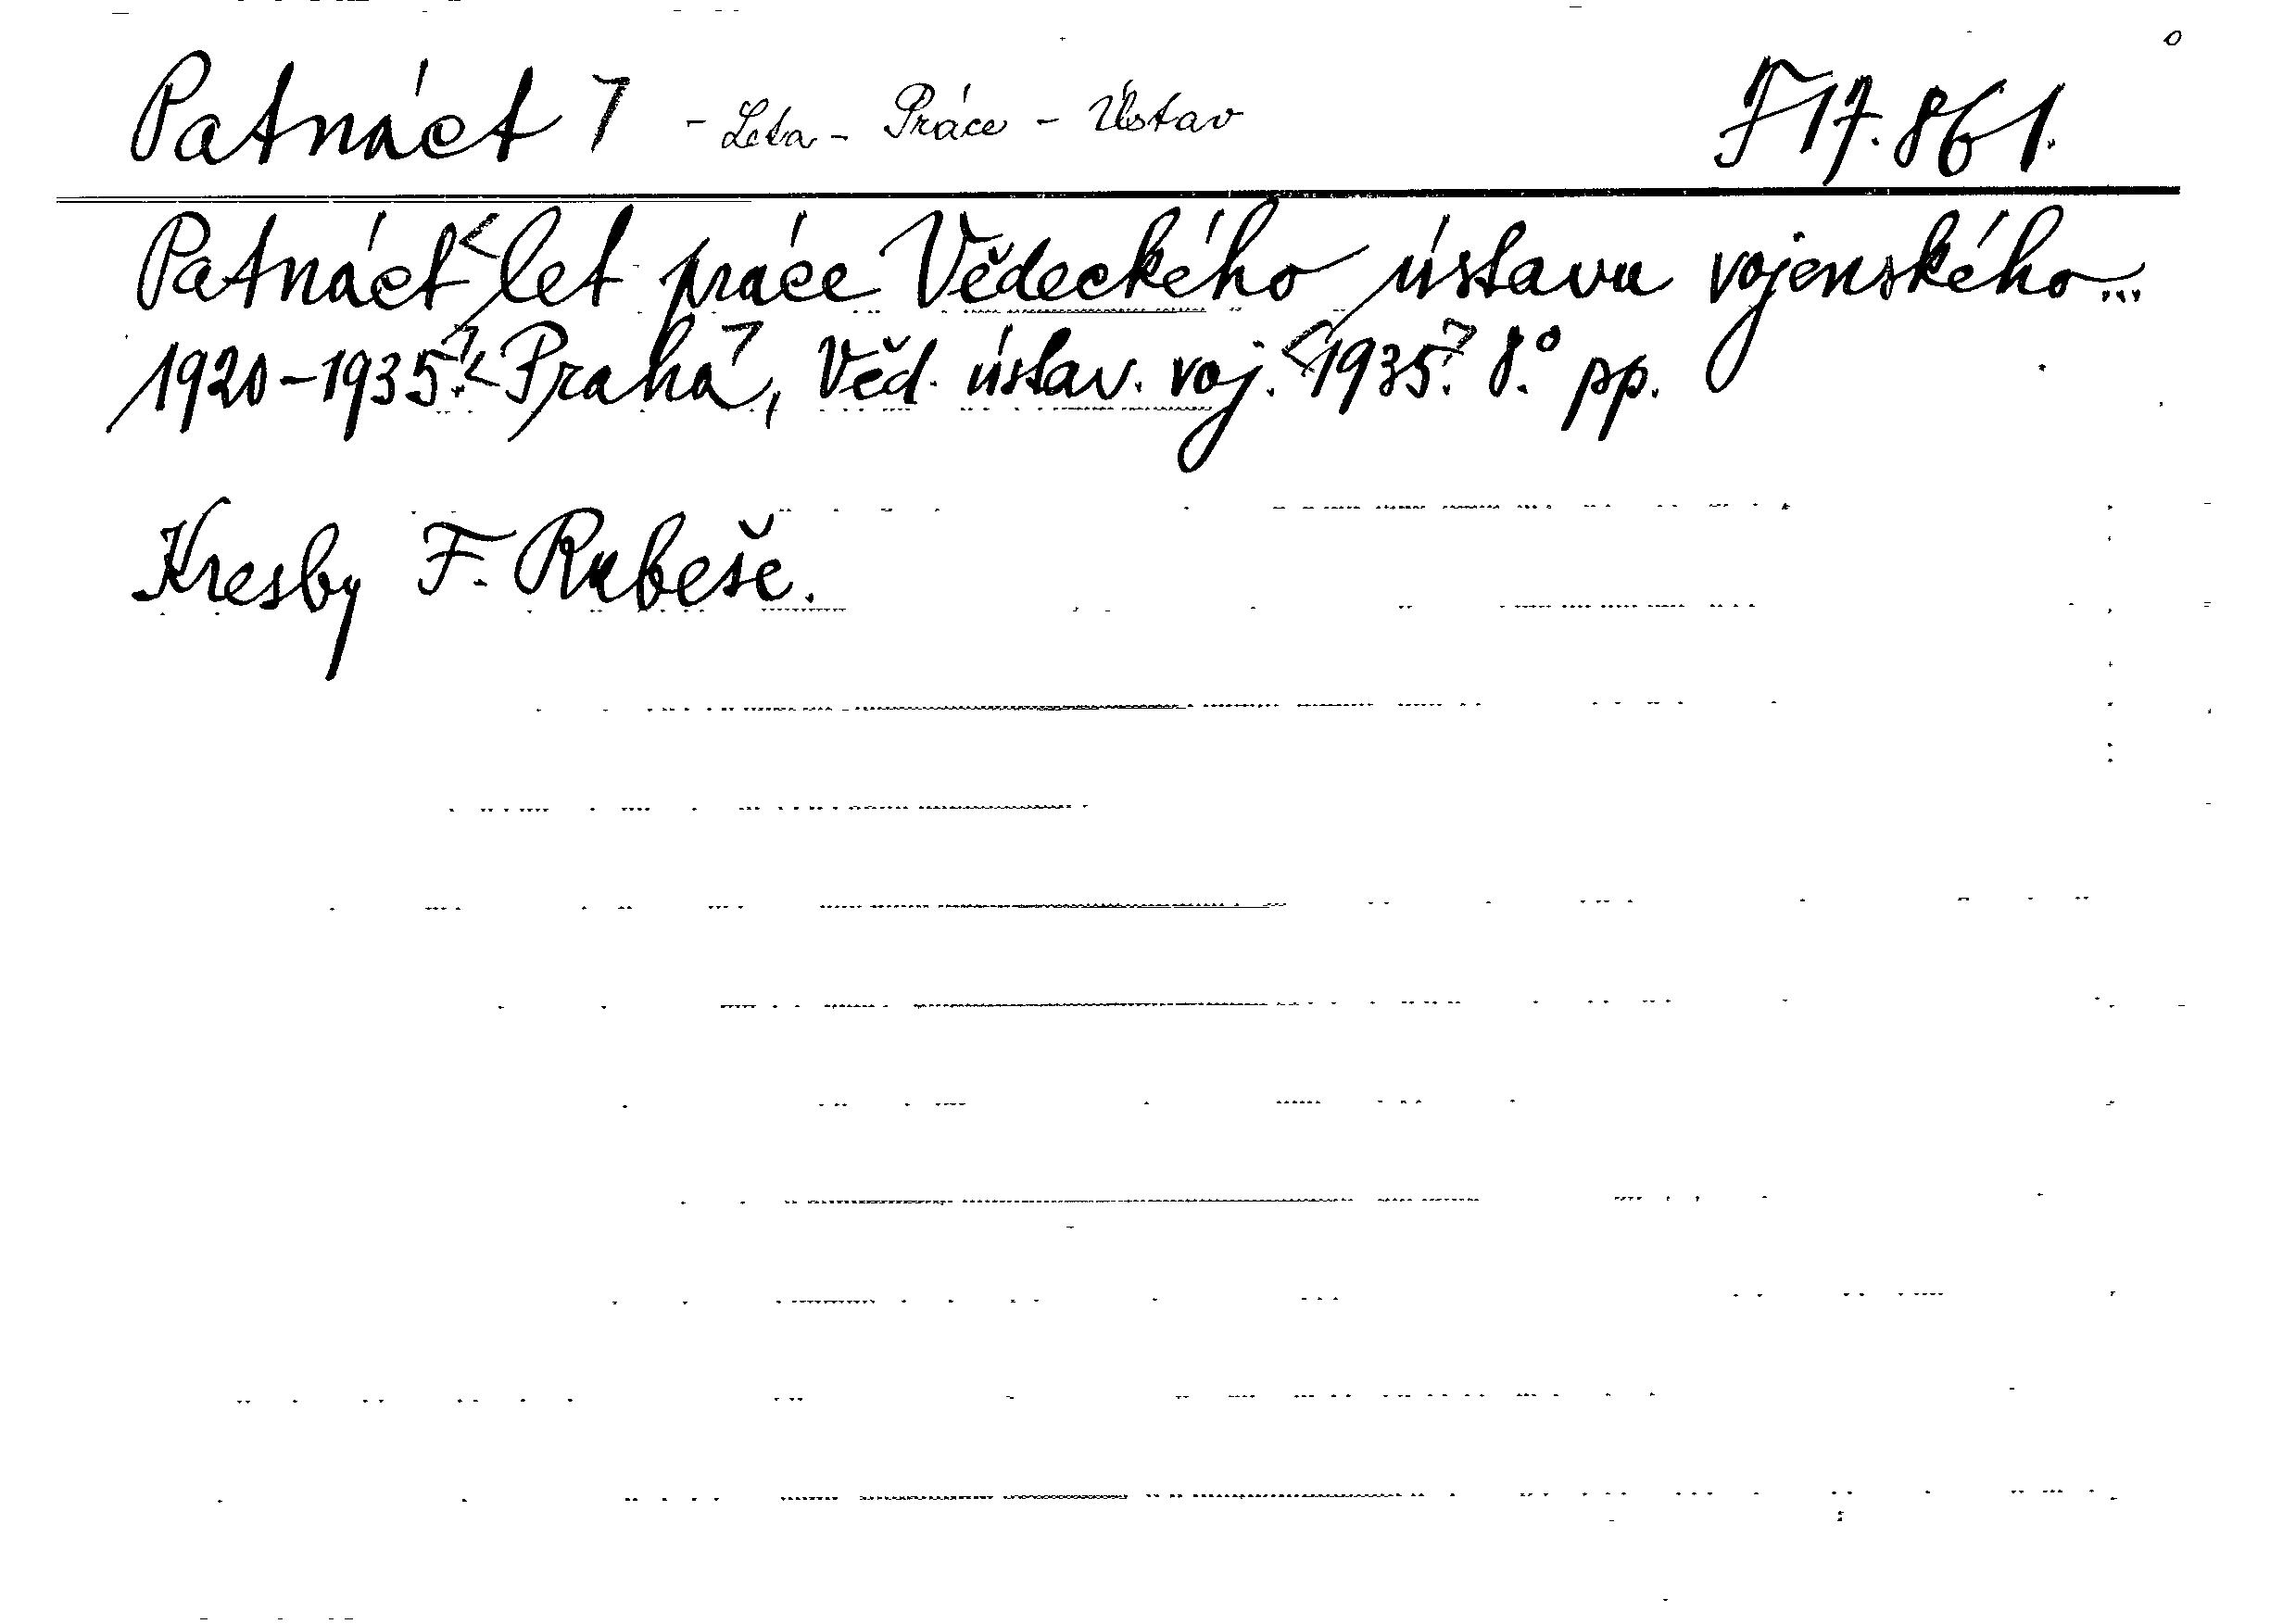 Patnáct 7 - Leta - Práce - Ústav F 17.861.
Patnáct let práce Vědeckého ústavu vojenského...
1920-1935. Praha, Věd. ústav. voj. 1935. 8.° pp.
Kresby F. Rubeše.